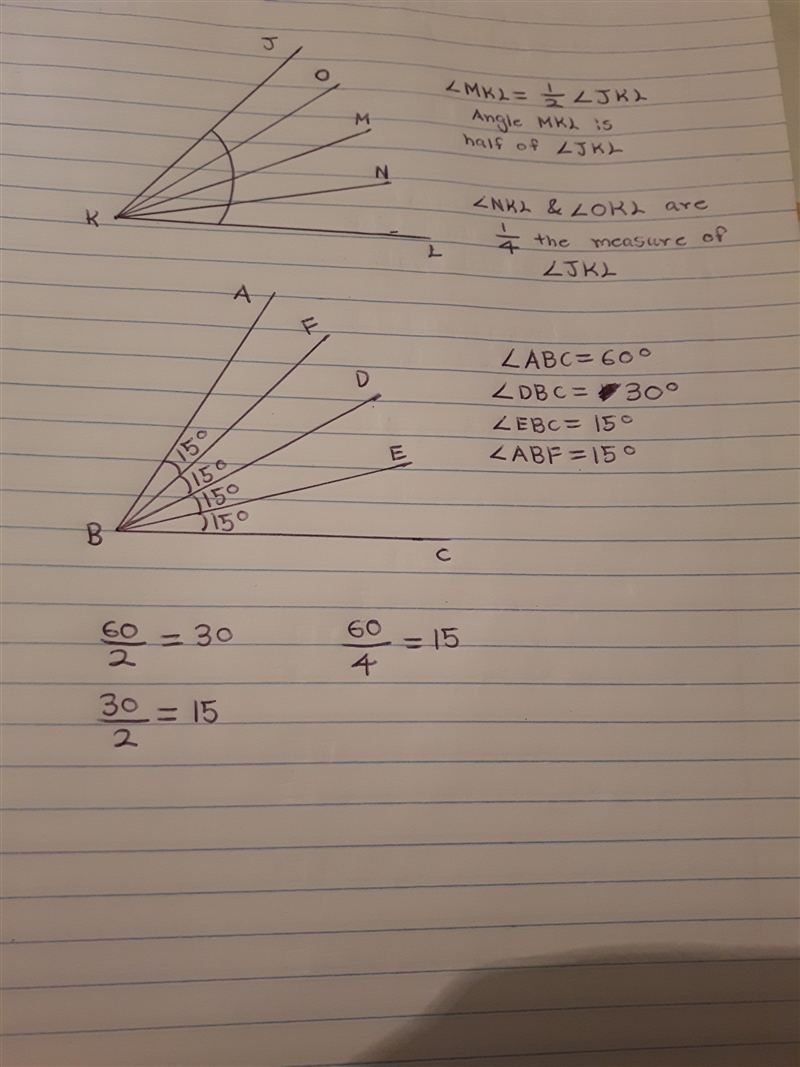 J
O
M
N
K
L
∠MKL = 1/2 ∠JKL
Angle MKL is
half of ∠JKL
∠NKL & ∠OKL are
1/4 the measure of
∠JKL
A
F
D
E
B
C
15°
15°
15°
15°
∠ABC = 60°
∠DBC = 30°
∠EBC = 15°
∠ABF = 15°
60/2 = 30
60/4 = 15
30/2 = 15